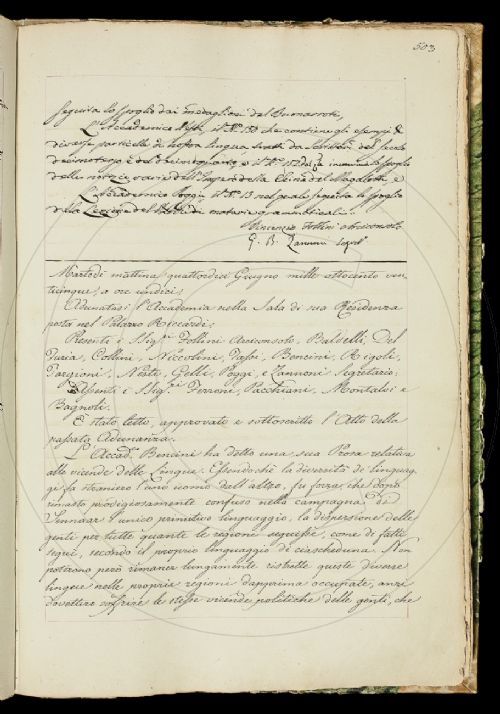 503
seguita lo spoglio dai medaglioni del Buonarroti,
L'Accademico il N.º 150 che contiene gli esempj di
diverse particelle di nostra lingua tratti da Scrittori del secolo
decimoterzo e del decimoquarto, e il N.º 152 dove lo spoglio
delle notizie cavate del Saper della China del Magalotti e
L'Accademico Poggi il N.º 13 nel quale seguita lo spoglio
della Lezione del di materie grammaticali.
Vincenzio Follini Arciconsolo
G. B. Zannoni Segret.
Martedì mattina quattordici Giugno mille ottocento ven
ticinque, a ore undici.
Adunatasi l'Accademia nella Sala di sua Residenza
posta nel Palazzo Riccardi;
Presenti i Sigg.ri Follini Arciconsolo, Baldelli, Del
Furia, Collini, Niccolini, Papi, Bencini, Rigoli,
Targioni, Nesti, Gelli, Poggi, e Zannoni Segretario;
Assenti i Sigg.ri Ferroni, Pacchiani, Montalvi e
Bagnoli.
È stato letto, approvato e sottoscritto l'Atto della
passata Adunanza.
L'Accad. Bencini ha detto una sua Prosa relativa
alle vicende delle lingue. Essendochè la diversità de' linguag
gi fa straniero l'uno uomo dall'altro, fu forza, che dopo
rimasto prodigiosamente confuso nella campagna di
Sennaar l'unico primitivo linguaggio, la dispersione delle
genti per tutte quante le regioni seguisse, come di fatti
seguì, secondo il proprio linguaggio di ciascheduna. Non
poterono però rimaner lungamente ristrette queste diverse
lingue nelle proprie regioni dapprima occupate, anzi
dovettero soffrire le stesse vicende politiche delle genti, che